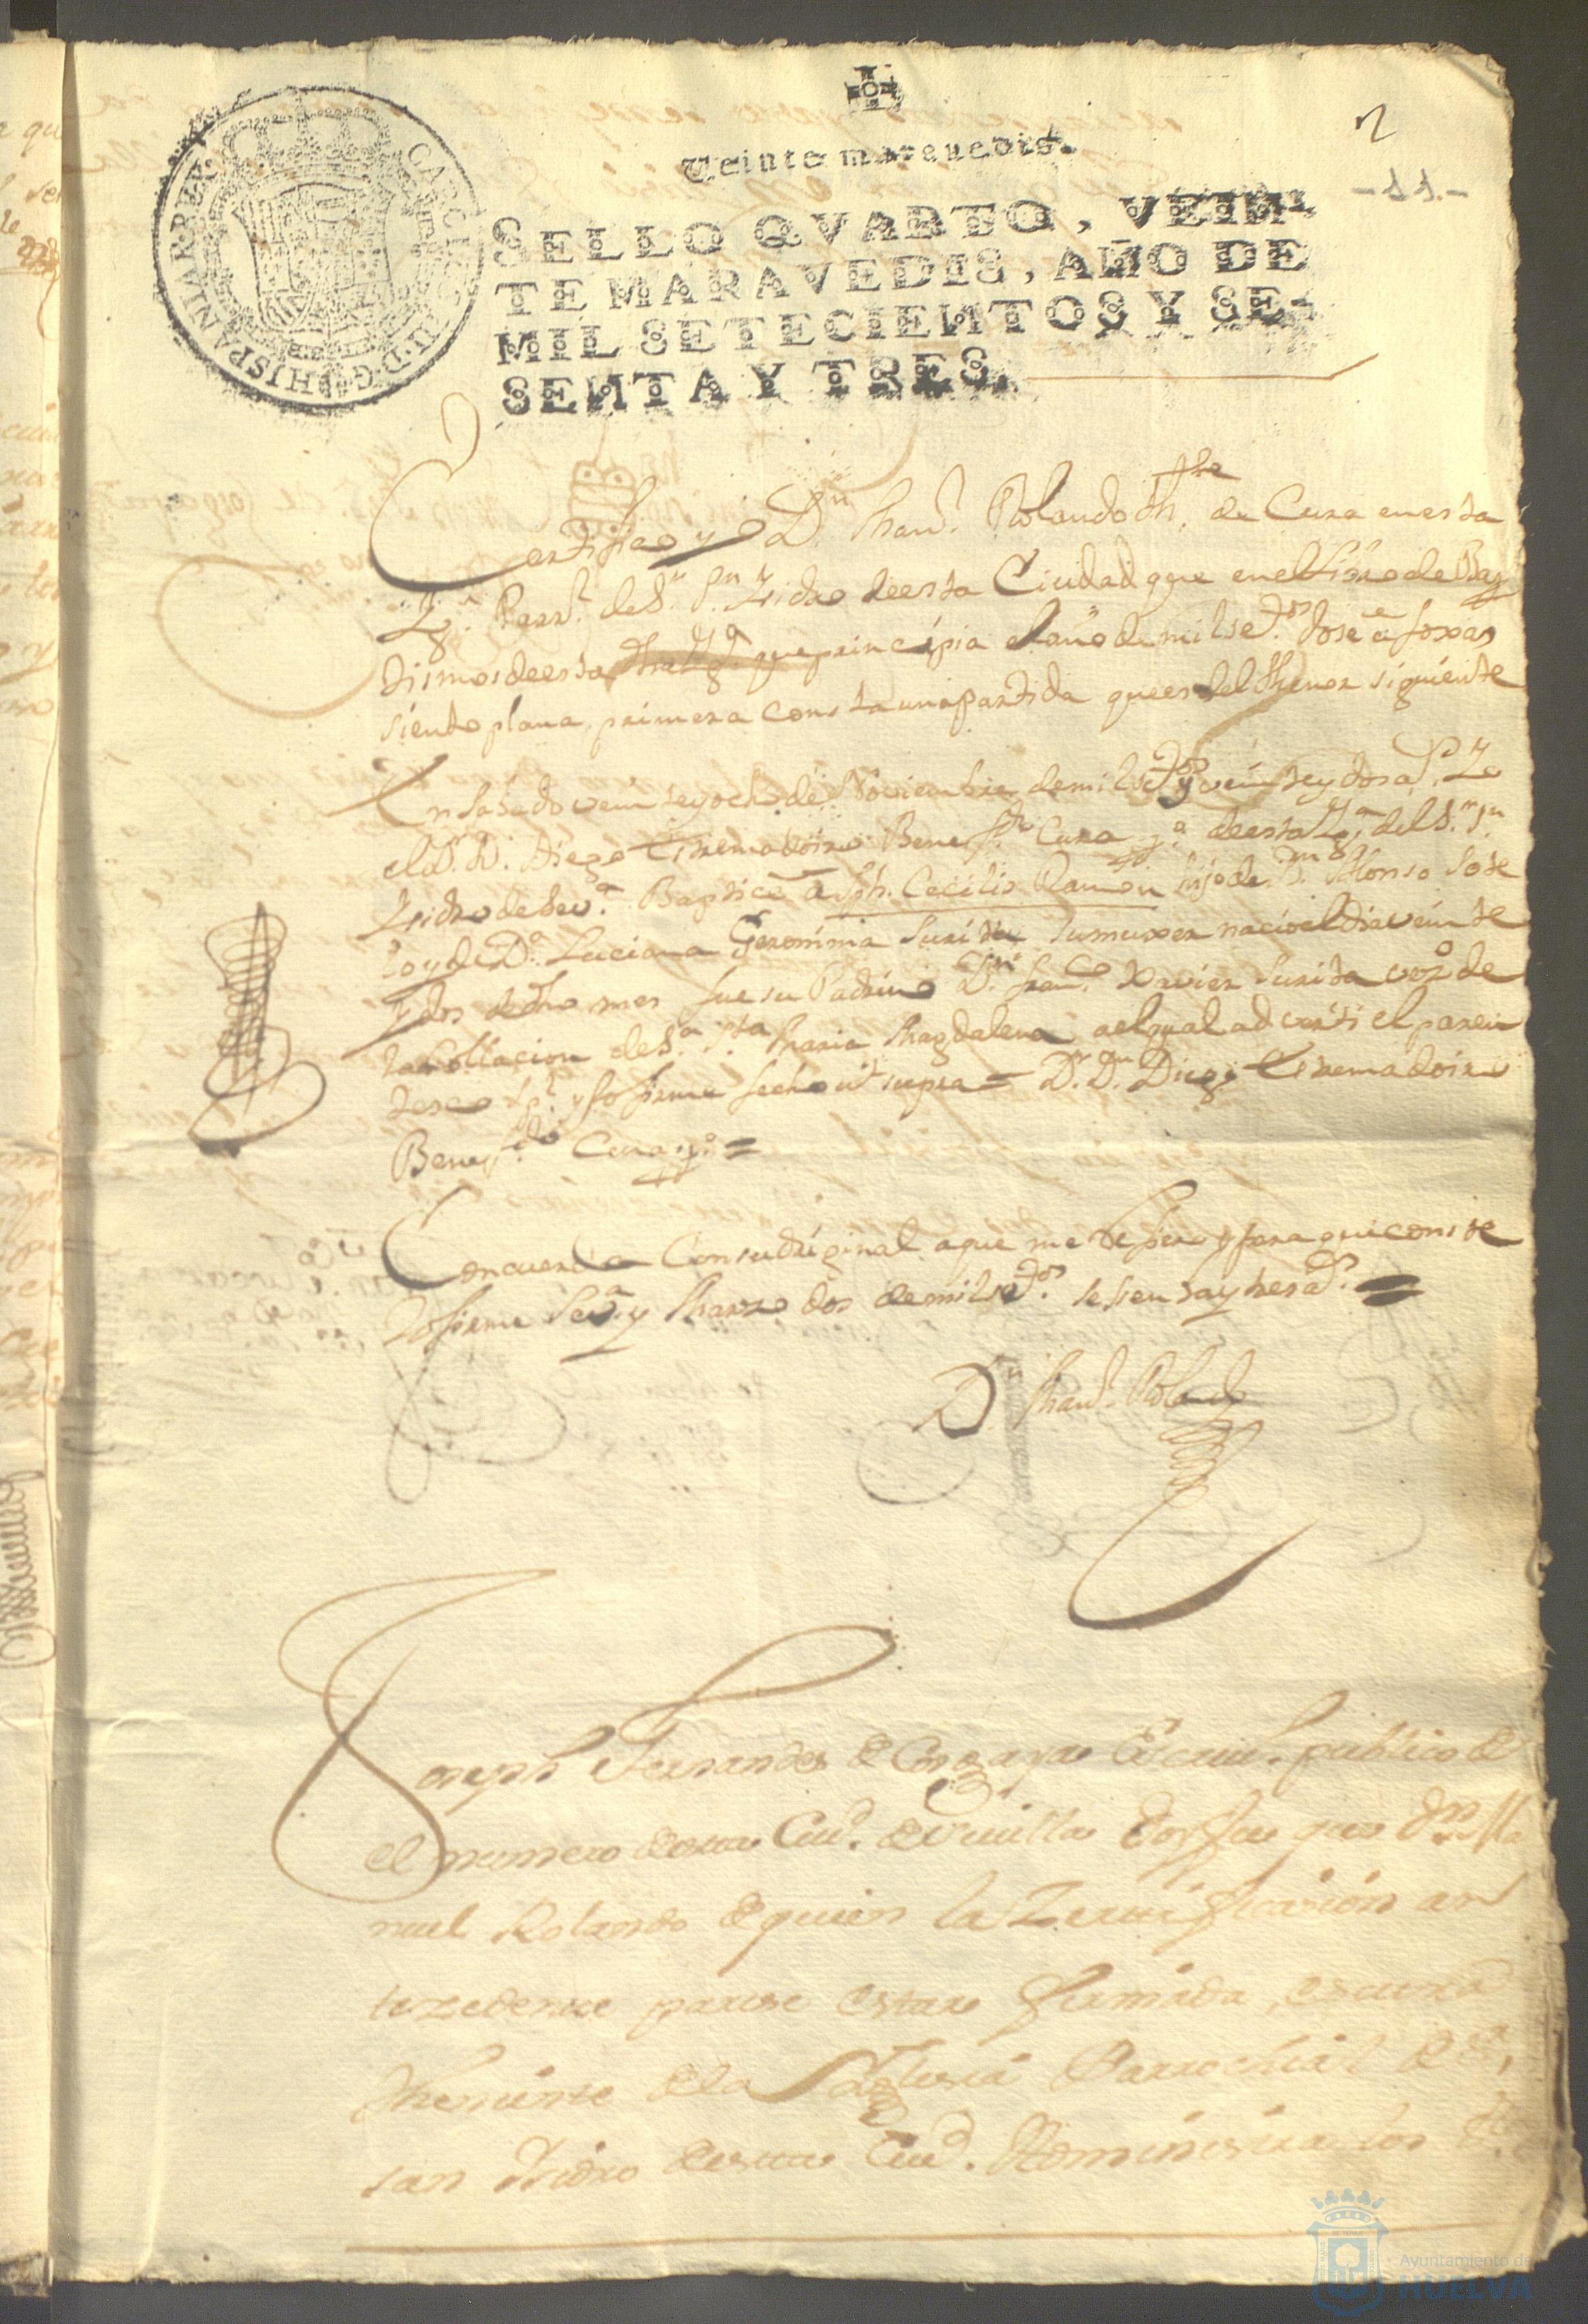 2
Veinte maravedis.
-11.-
CAROLUS III D.G. HISPANIAR. REX
SELLO QVARTO, VEIN-
TE MARAVEDIS, AÑO DE
MIL SETECIENTOS Y SE-
SENTA Y TRES.
Certifico yo Dn. Manl. Rolando Thte. de Cura en esta
Yga. Parrl. de Sr. Sn. Ysidro de esta Ciudad que en el Libro de Bap
tismos de esta que principia el año de mil setos. dose a foxas
siento plana primera consta una partida que es del thenor siguiente
En Sabado veinte y ocho de Noviembre de mil setos. y veinte y dos as. Yo
el Dr. Dn. Diego Tiremadoiro Benefdo. Cura po. de esta Yga. del Sr. Sn.
Ysidro de Seva. Baptice a Jph. Cecilio Ramon hijo de Dn. Alfonso Sote
lo y de Da. Luciana Geronima Surita su muxer nacio el dia veinte
y dos de dho mes fue su Padrino Dn. Franco. Xavier Surita vezo. de
la Collacion de Sa. Sta. Maria Magdalena al qual adverti el paren
tesco spl. y lo firme fecho ut supra = Dr. Dn. Diego Tiremadoiro
Benefdo. Cura po. =
Concuerda Con su original a que me refiero y para que conste
lo firme Seva. y Marzo dos de mil setos. sesenta y tres as. =
Dn. Manl. Rolando
Joseph Fernandes de Escriv. publico de
el numero de esta Ciud. de Sevilla doy fee que Dn. Ma
nuel Rolando de quien la Zertificazion an
tezedente parese estar firmada, es cura
theniente de la Yglesia Parrochial de Sr.
san Ysidro de esta Ciud. Administra los Stos.
Ayuntamiento de
HUELVA